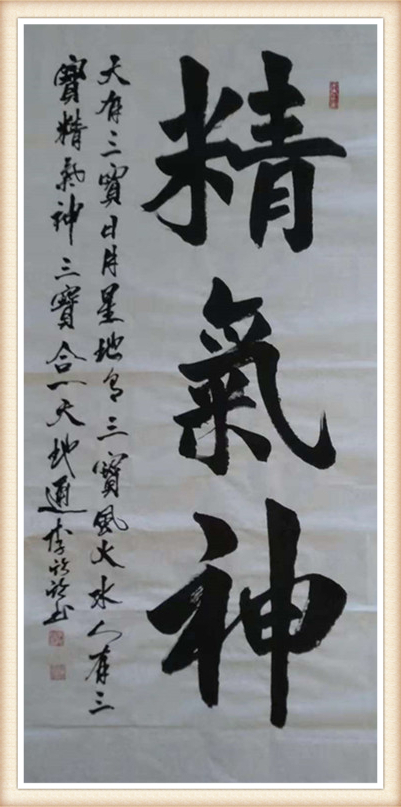 精氣神
天有三寶日月星地有三寶風火水人有三
寶精氣神三寶合一天地通李